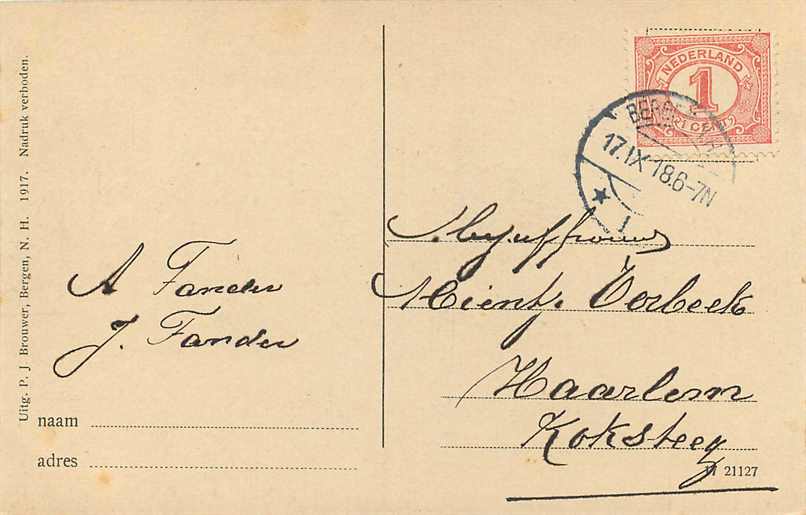 Uitg. P. J Brouwer, Bergen, N. H. 1917. Nadruk verboden.
A Fander
J. Fander
naam
adres
NEDERLAND
1
CENT
17.IX 18.6-7N
1
Mejuffrouw
Mientje Verbeek
Haarlem
Koksteeg
21127